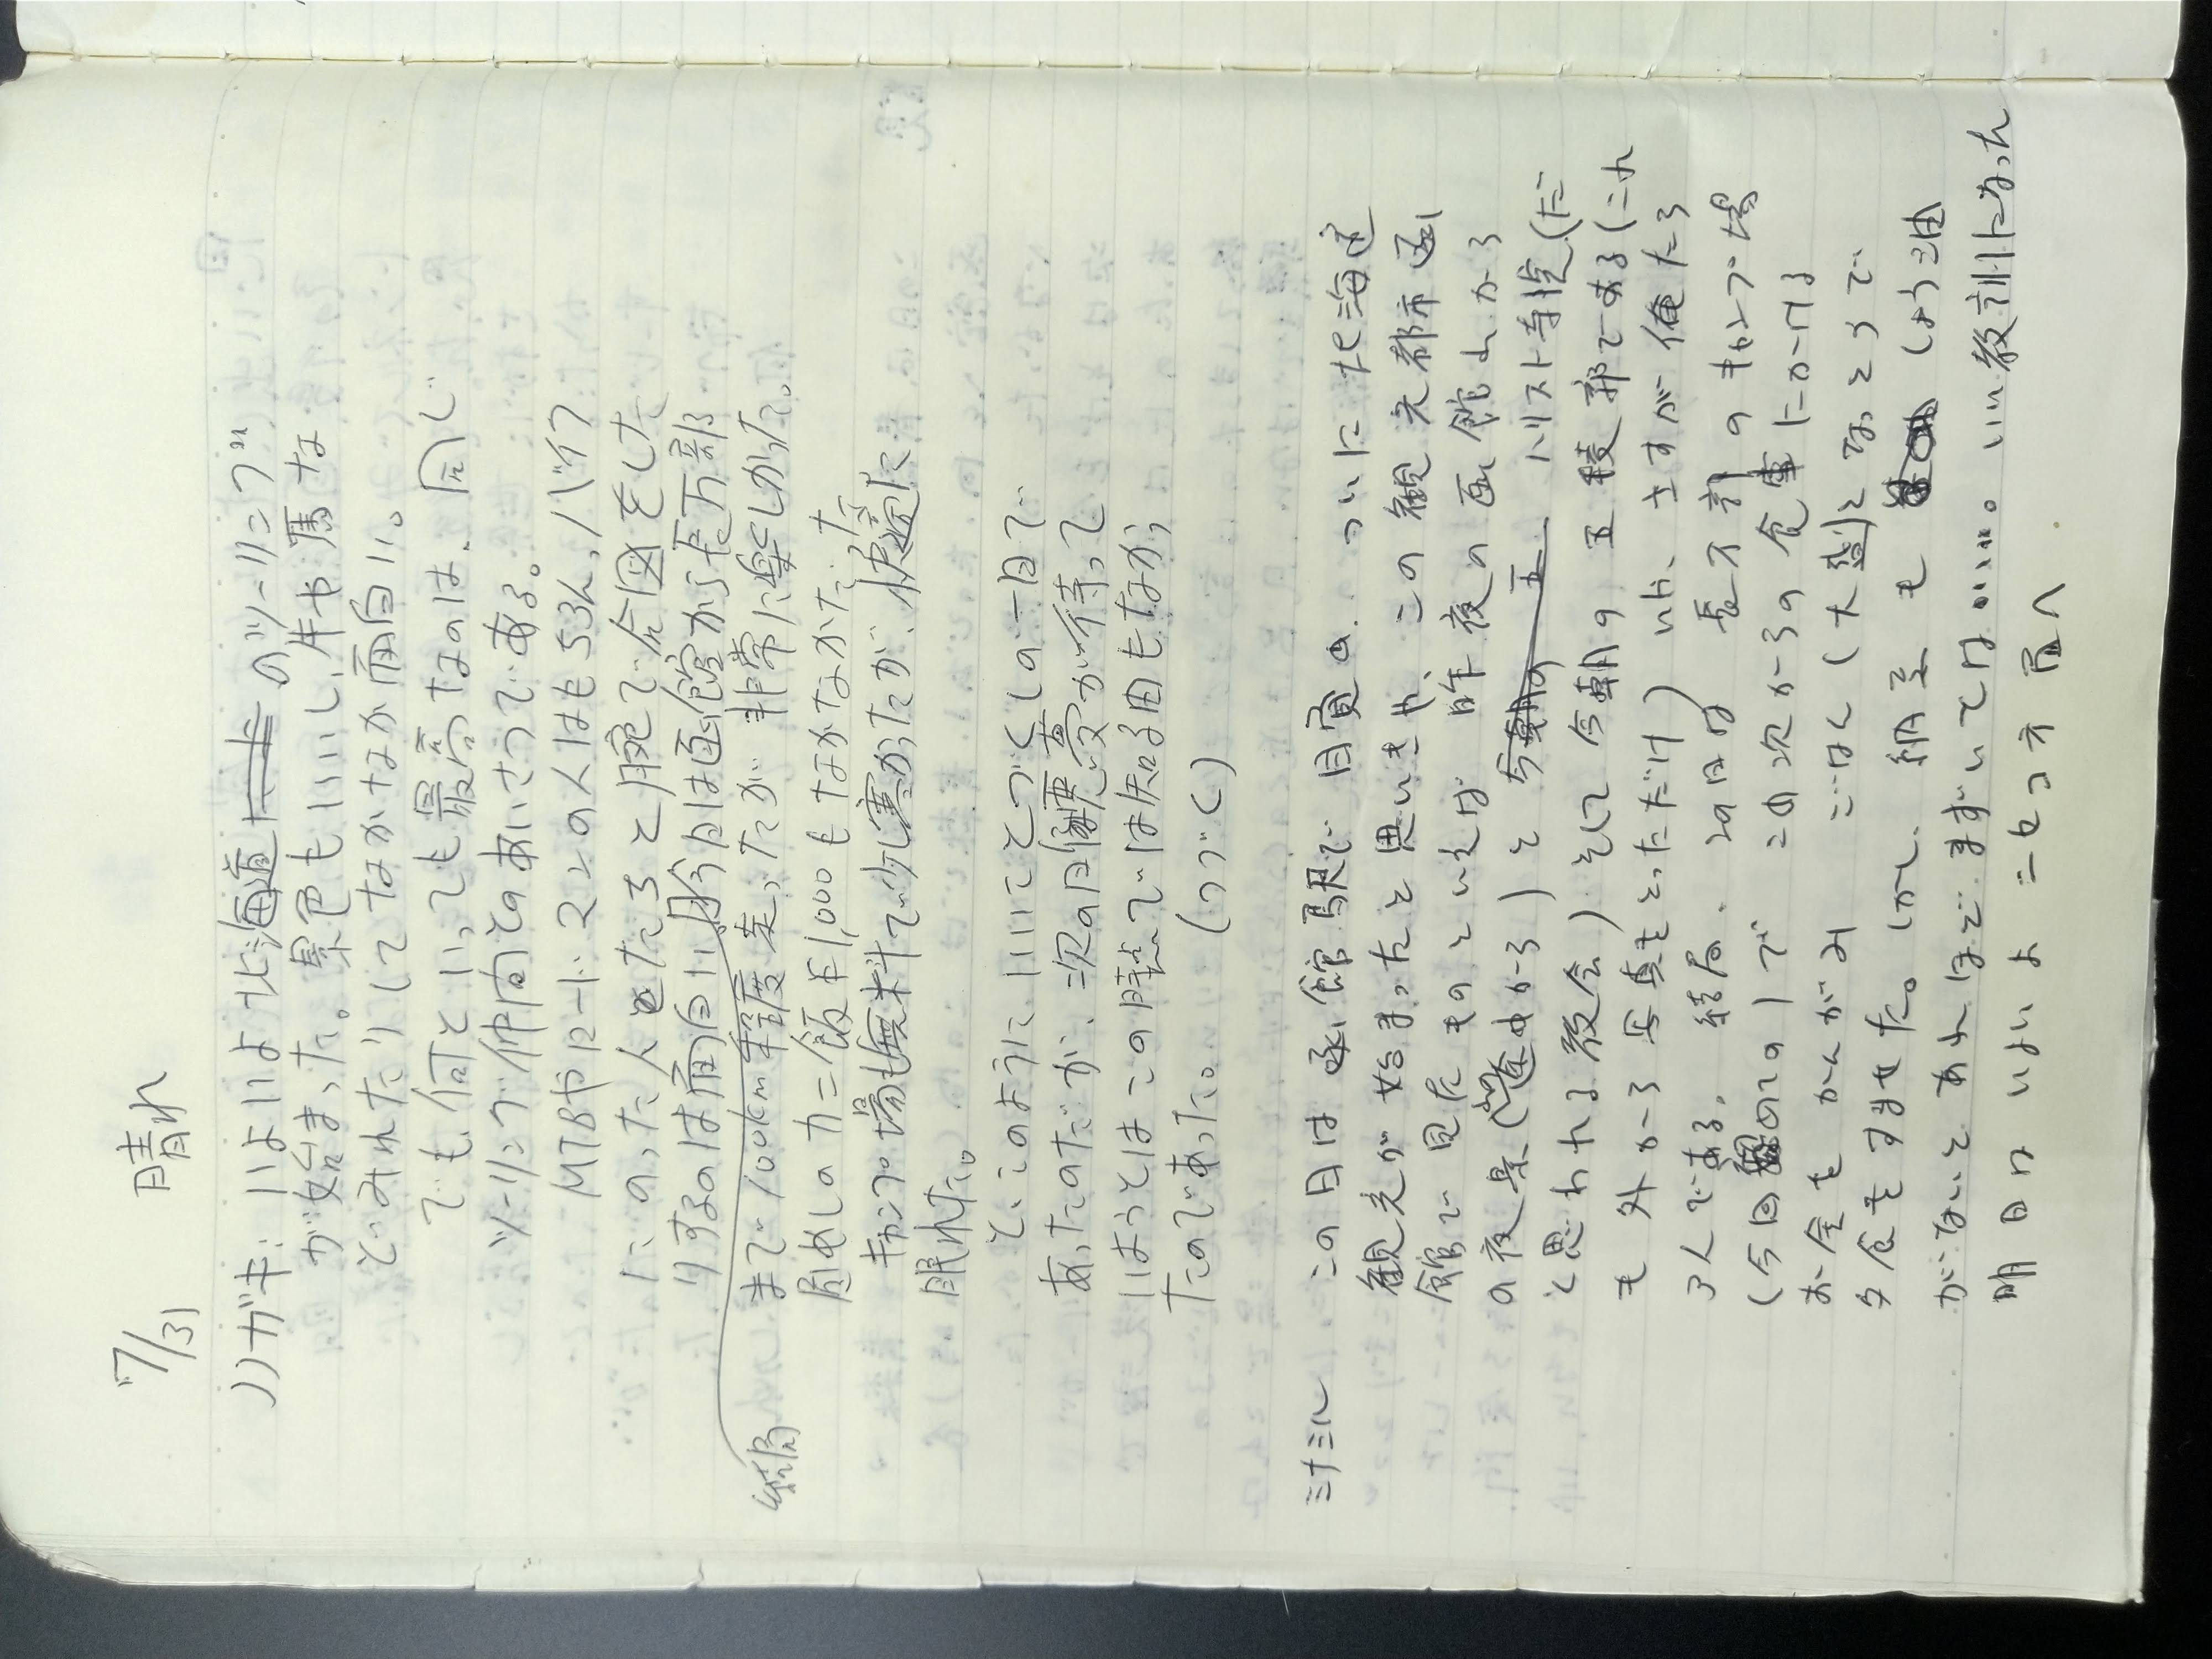 7/31 晴れ
ハガキ:いよいよ北海道のツーリング
が始まった。景色もいいし、牛や馬な
どみれたりしてなかなか面白い。
でも、何といっても最高なのは、同じ
ツーリング仲間とのあいさつである。
MTBやロード、2人の人はもちろん、バイク
にのった人たちと腕で合図をした
りするのは面白い。今日は函館から長万部
まで100km程度走ったが非常に楽しかった。
昼めしのカニ飯¥1,000もなかなかだった
キャンプ場も無料で少し寒かったが、快適に
眠れた。
と、このようにいいことづくしの一日で
あったのだが、次の日悪夢が待って
いようとはこの時点では知る由もなか
たのであった。 (つづく)
結局
ミナミル この日は函館駅で目覚め ついに北海道
観光が始まったと思いきや、この観光都市函
館で見たものといえば 昨夜の函館山から
の夜景 と ハリスト寺院(だ
と思われる教会)そして今朝の五稜郭である(これ
も外から写真をとっただけ) いや、さすが俺たち
3人である。結局、この日は長万部のキャンプ場
(今回のこの1)で この次からの食事にかける
お金をかんがみ ごはん(大盛)となっとうで
夕食をすませた。しかし、納豆も しょう油
がないとあれほどまずいとは……。いい教訓になった
明日はいよいよニセコ方面へ